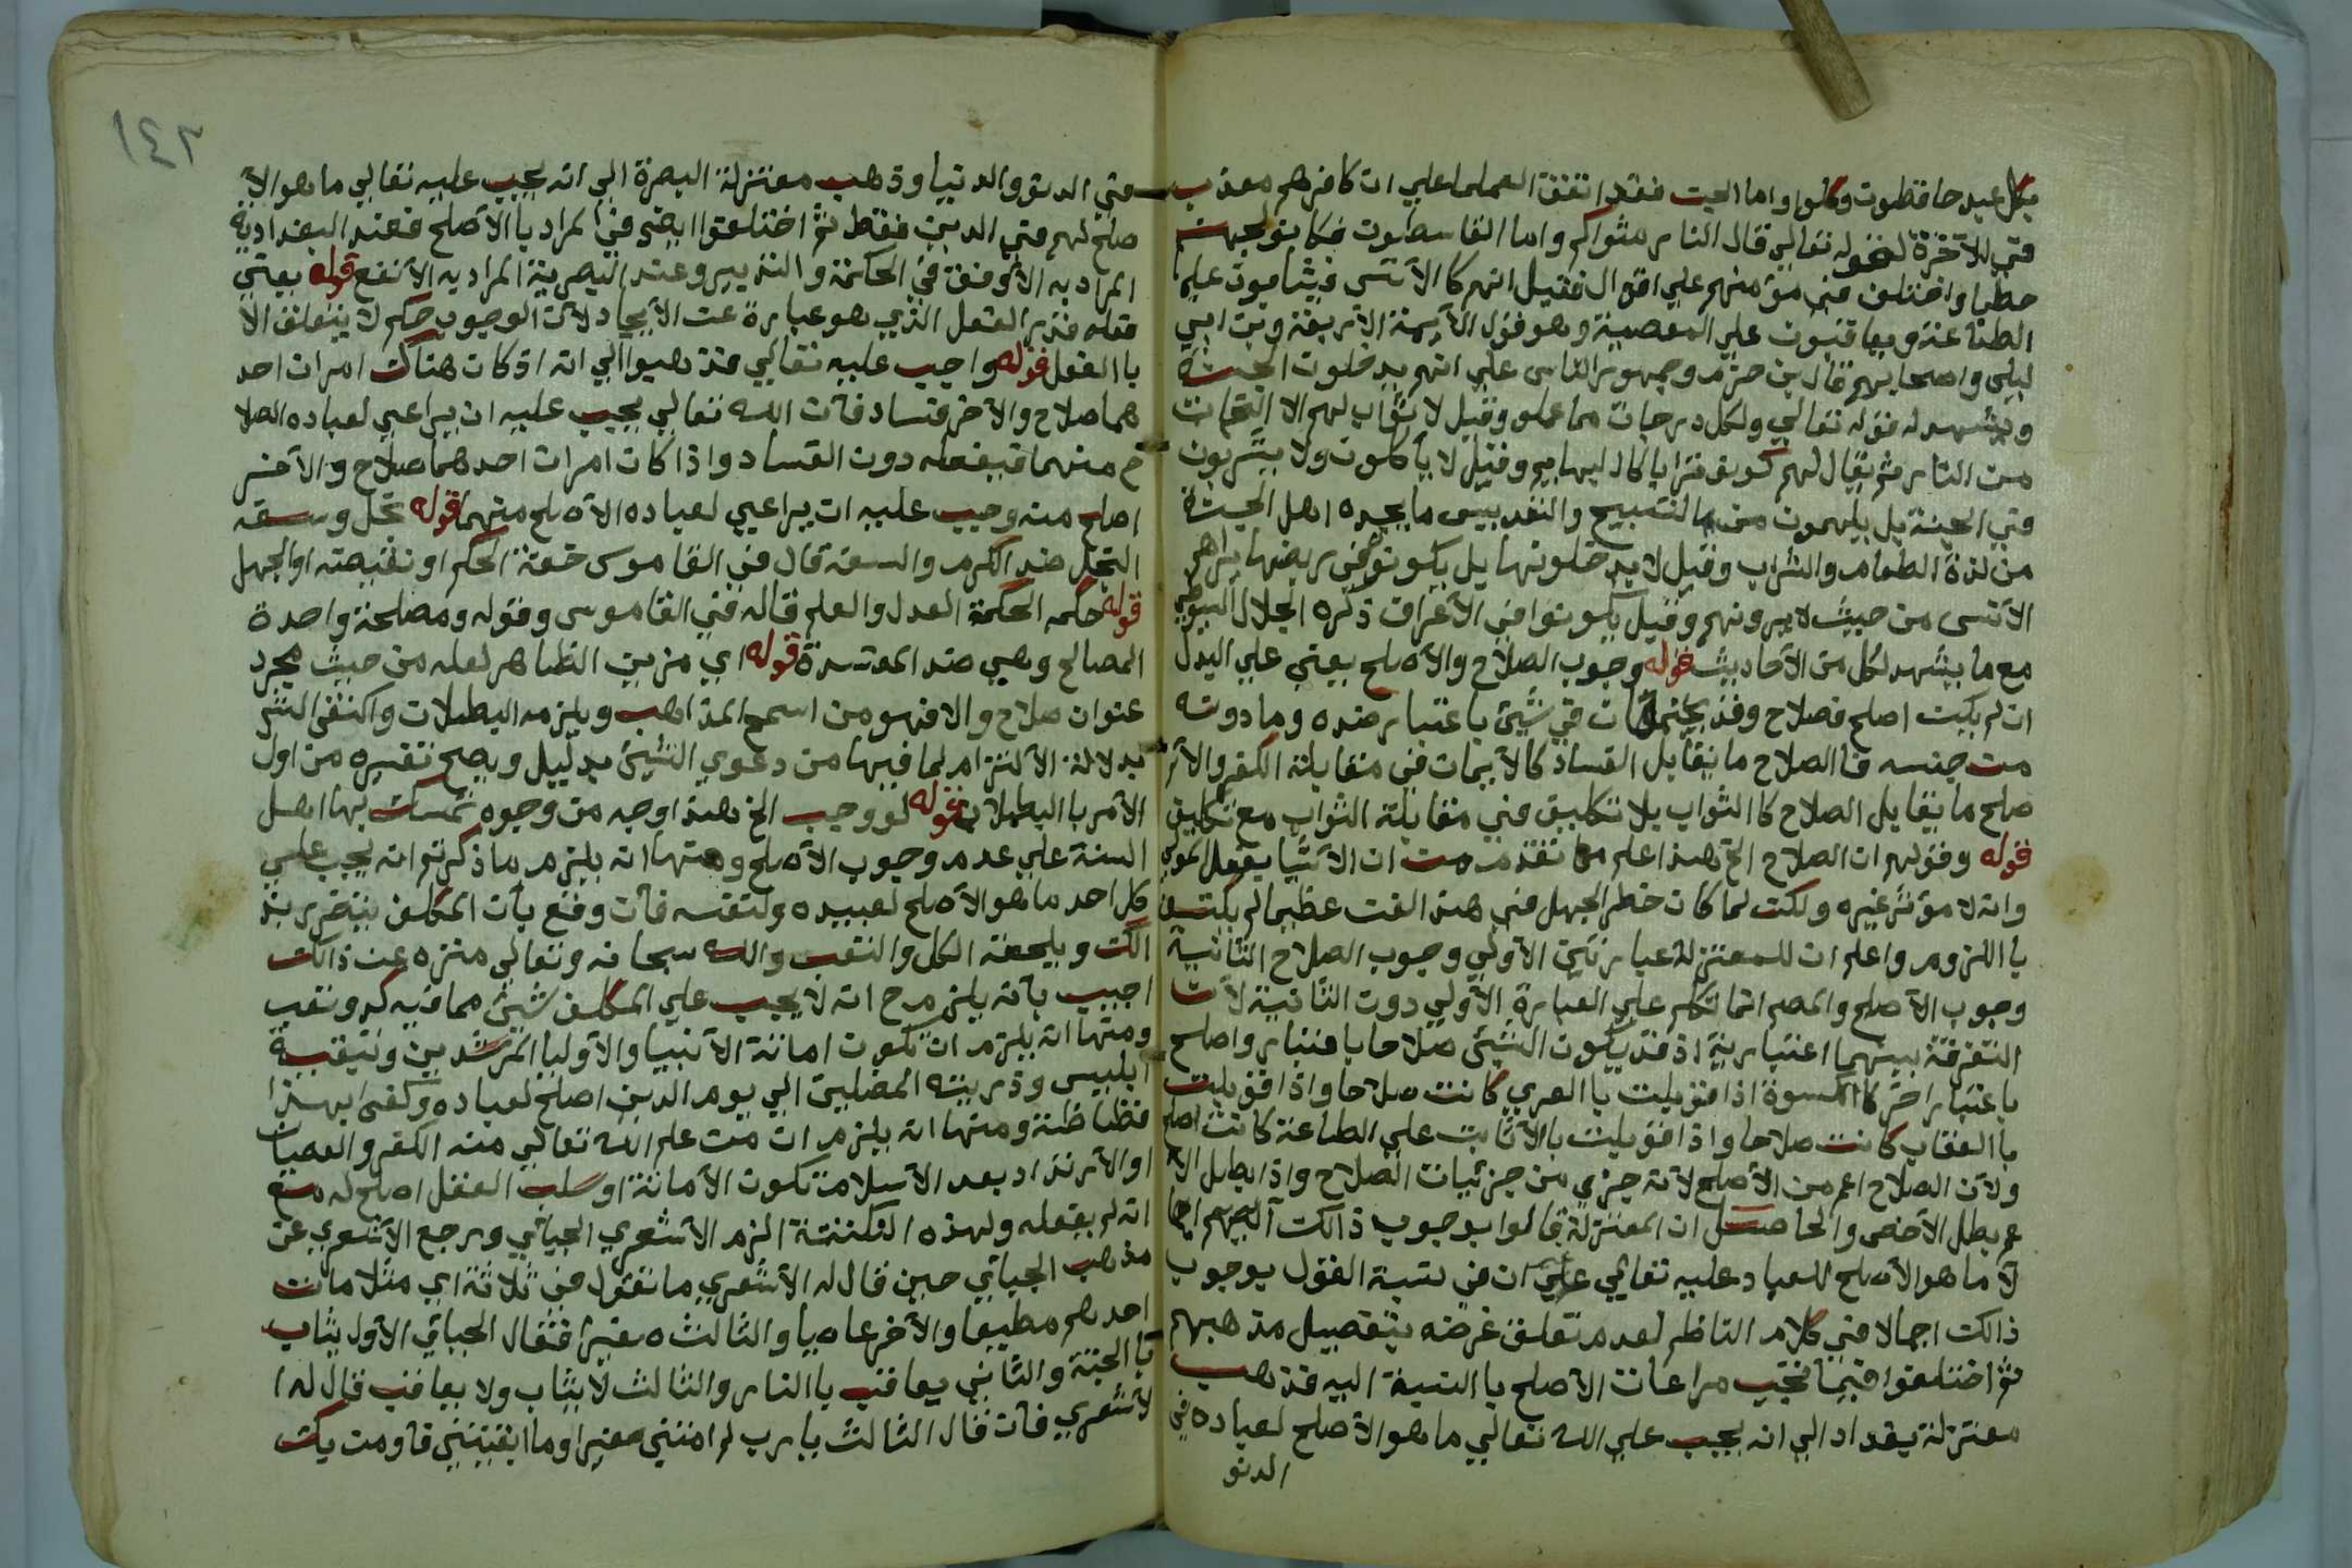 بكل عبد حافظون وكلوا واما الجن فقد اتفق العلما علي ان كافرهم معذب
في الآخرة لقوله تعالي قال النار مثواكم واما القاسطون فكانو لجهنم
حطبا واختلف في مؤمنهم علي اقوال فقيل انهم كا الأنس فيثابون علي
الطاعة ويعاقبون علي المعصية وهو قول الأيمة الأربعة وبن ابي
ليلي واصحابهم قال بن حزم وجمهور الناس علي انهم يدخلون الجنة
ويشهد له قوله تعالي ولكل درجات مما عملو وقيل لا ثواب لهم الا النجاة
من النار ثم يقال لهم كونو ترابا كالبهايم وقيل لا يأكلون ولا يشربون
في الجنة بل يلهمون من التسبيح والتقديس ما يجده اهل الجنة
من لذة الطعام والشراب وقيل لا يدخلونها بل يكونو في ربضها يراهم
الأنس من حيث لا يرونهم وقيل يكونوا في الأعراف ذكره الجلال السيوطي
مع ما يشهد لكل من الأحاديث قوله وجوب الصلاح والأصلح يعني علي البدل
ان لم يكن اصلح فصلاح وقد يجتمعان في شيئ باعتبار ضده وما دونه
من جنسه فا الصلاح ما يقابل الفساد كالأيمان في مقابلة الكفر والأ
صلح ما يقابل الصلاح كا الثواب بلا تكليف في مقابلة الثواب مع تكليف
قوله وقولهم ان الصلاح الخ هذا علم مما تقدم من ان الأشيا بفعل المولي
وانه لا مؤثر غيره ولكن لما كان خطر الجهل في هذا الفن عظيما لم يكتف
با اللزوم واعلم ان للمعتزلة عبارتين الأولي وجوب الصلاح الثانية
وجوب الأصلح والمصم انما تكلم علي العبارة الأولي دون الثانية لأن
التفرقة بينهما اعتبارية اذ قد يكون الشيئ صلاحا با عتبار واصلح
با عتبار اخر كا الكسوة اذا قوبلت با العري كانت صلاحا واذا قوبلت
با العقاب كانت صلاحا واذا قوبلت بالأثابت علي الطاعة كانت اصلح
ولأن الصلاح اعم من الأصلح لأنه جزي من جزئيات الصلاح واذا بطل الأ
عم بطل الأخص والحاصل ان المعتزلة قالوا بوجوب ذالك
لأ ما هو الأصلح للعباد عليه تعالي علي ان في نسبة القول بوجوب
ذالك اجمالا في كلام الناظم لعدم تعلق غرضه بتفصيل مذهبهم
ثم اختلفوا فيما تجب مراعات الأصلح با النسبة اليه فذهب
معتزلة بغداد الي انه يجب علي الله تعالي ما هو الأصلح لعباده في
الدنو
١٤٢
في الدنو والدنيا وذهب معتزلة البصرة الي انه يجب عليه تعالي ما هو الأ
صلح لهم في الدين فقط ثم اختلفوا ايضى في المراد با الأصلح فعند البغدادية
المراد به الأوفق في الحكمة والتدبير وعند البصرية المراد به الأنفع قوله يعني
فعله فذير الفعل الذي هو عبارة عن الأيجاد لأن الوجوب حكم لا يتعلق الا
با الفعل قوله واجب عليه تعالي فذهبوا الي انه اذ كان هناك امران احد
هما صلاح والأخر فساد فأن الله تعالي يجب عليه ان يراعي لعباده الصلا
ح منهما فيفعله دون الفساد واذا كان امران احدهما صلاح والأخر
اصلح منه وجب عليه ان يراعي لعباده الأصلح منهما قوله بخل وسفه
البخل ضد الكرم والسفه قال في القاموس خفة الحلم او نقيضه او الجهل
قوله حكمه الحكمة العدل والعلم قاله في القاموس وقوله ومصلحة واحدة
المصالح وهي ضد المفسدة قوله اي مزين الظاهر لعله من حيث مجرد
عنوان صلاح والا فهو من اسمج المذاهب ويلزمه البطلان واكتفى الش
بدلالة الألتزام لما فيها من دعوي الشيئ بدليل ويصح تفسيره من اول
الأمر با البطلان قوله لو وجب الخ هذا وجه من وجوه تمسك بها اهل
السنة علي عدم وجوب الأصلح ومنها انه يلزم ما ذكرتم انه يجب علي
كل احد ما هو الأصلح لعبيده ولنفسه فأن وقع بأن المكلف يتضرر بذ
الك ويلحقه الكل والتعب والله سبحانه وتعالي منزه عن ذالك
اجيب بأنه يلزم ح انه لا يجب علي المكلف شيئ مما فيه كد وتعب
ومنها انه يلزم ان تكون اماتة الأنبيا والأوليا المرشدين وتبقية
ابليس وذريته المضلين الي يوم الدين اصلح لعباده وكفى بهذا
فظاظة ومنها انه يلزم ان من علم الله تعالي منه الكفر والعصيان
او الأرتداد بعد الأسلام تكون الأماتة او سلب العقل اصلح له مع
انه لم يفعله ولهذه النكتة الزم الأشعري الجبائي ورجع الأشعري عن
مذهب الجبائي حين قال له الأشعري ما تقول في ثلاثة اي مثلا مات
احدهم مطيعا والأخر عاصيا والثالث صغيرا فقال الجبائي الأول يثاب
با الجنة والثاني يعاقب با النار والثالث لا يثاب ولا يعاقب قال له ا
لأشعري فأن قال الثالث يا رب لم امتني صغيرا وما ابقيتني فأومن بك